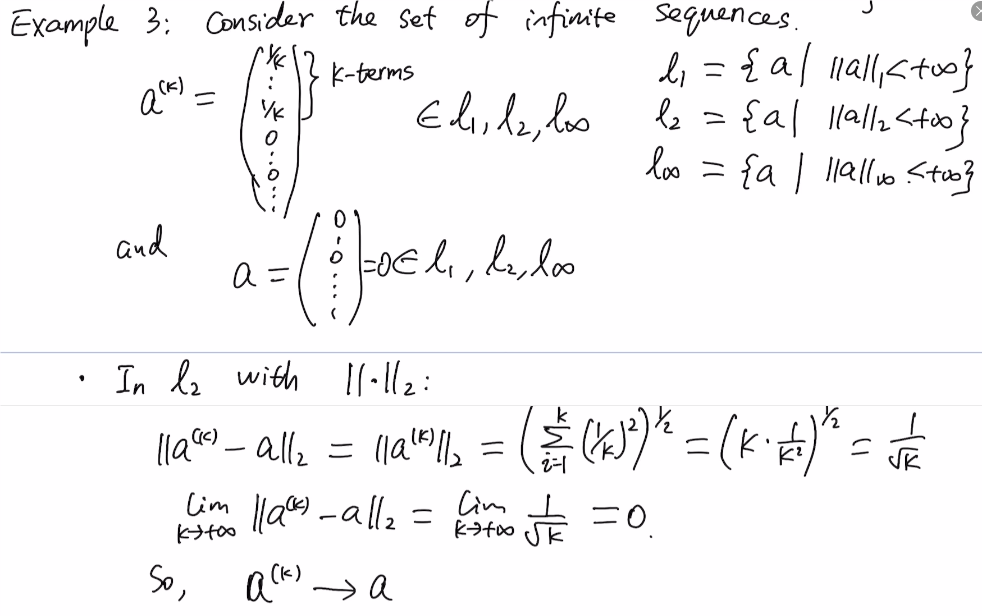 Example 3: Consider the set of infinite sequences.
a^(k) = (1/k ⋮ 1/k 0 ⋮ 0 ⋮) } k-terms ∈ l₁, l₂, l∞
l₁ = {a | ||a||₁ < +∞}
l₂ = {a | ||a||₂ < +∞}
l∞ = {a | ||a||∞ < +∞}
and a = (0 ⋮ 0 ⋮) = 0 ∈ l₁, l₂, l∞
· In l₂ with ||·||₂:
||a^(k) - a||₂ = ||a^(k)||₂ = (∑_{i=1}^{k} (1/k)²)^{1/2} = (k · 1/k²)^{1/2} = 1/√k
lim_{k→+∞} ||a^(k) - a||₂ = lim_{k→+∞} 1/√k = 0.
So, a^(k) → a